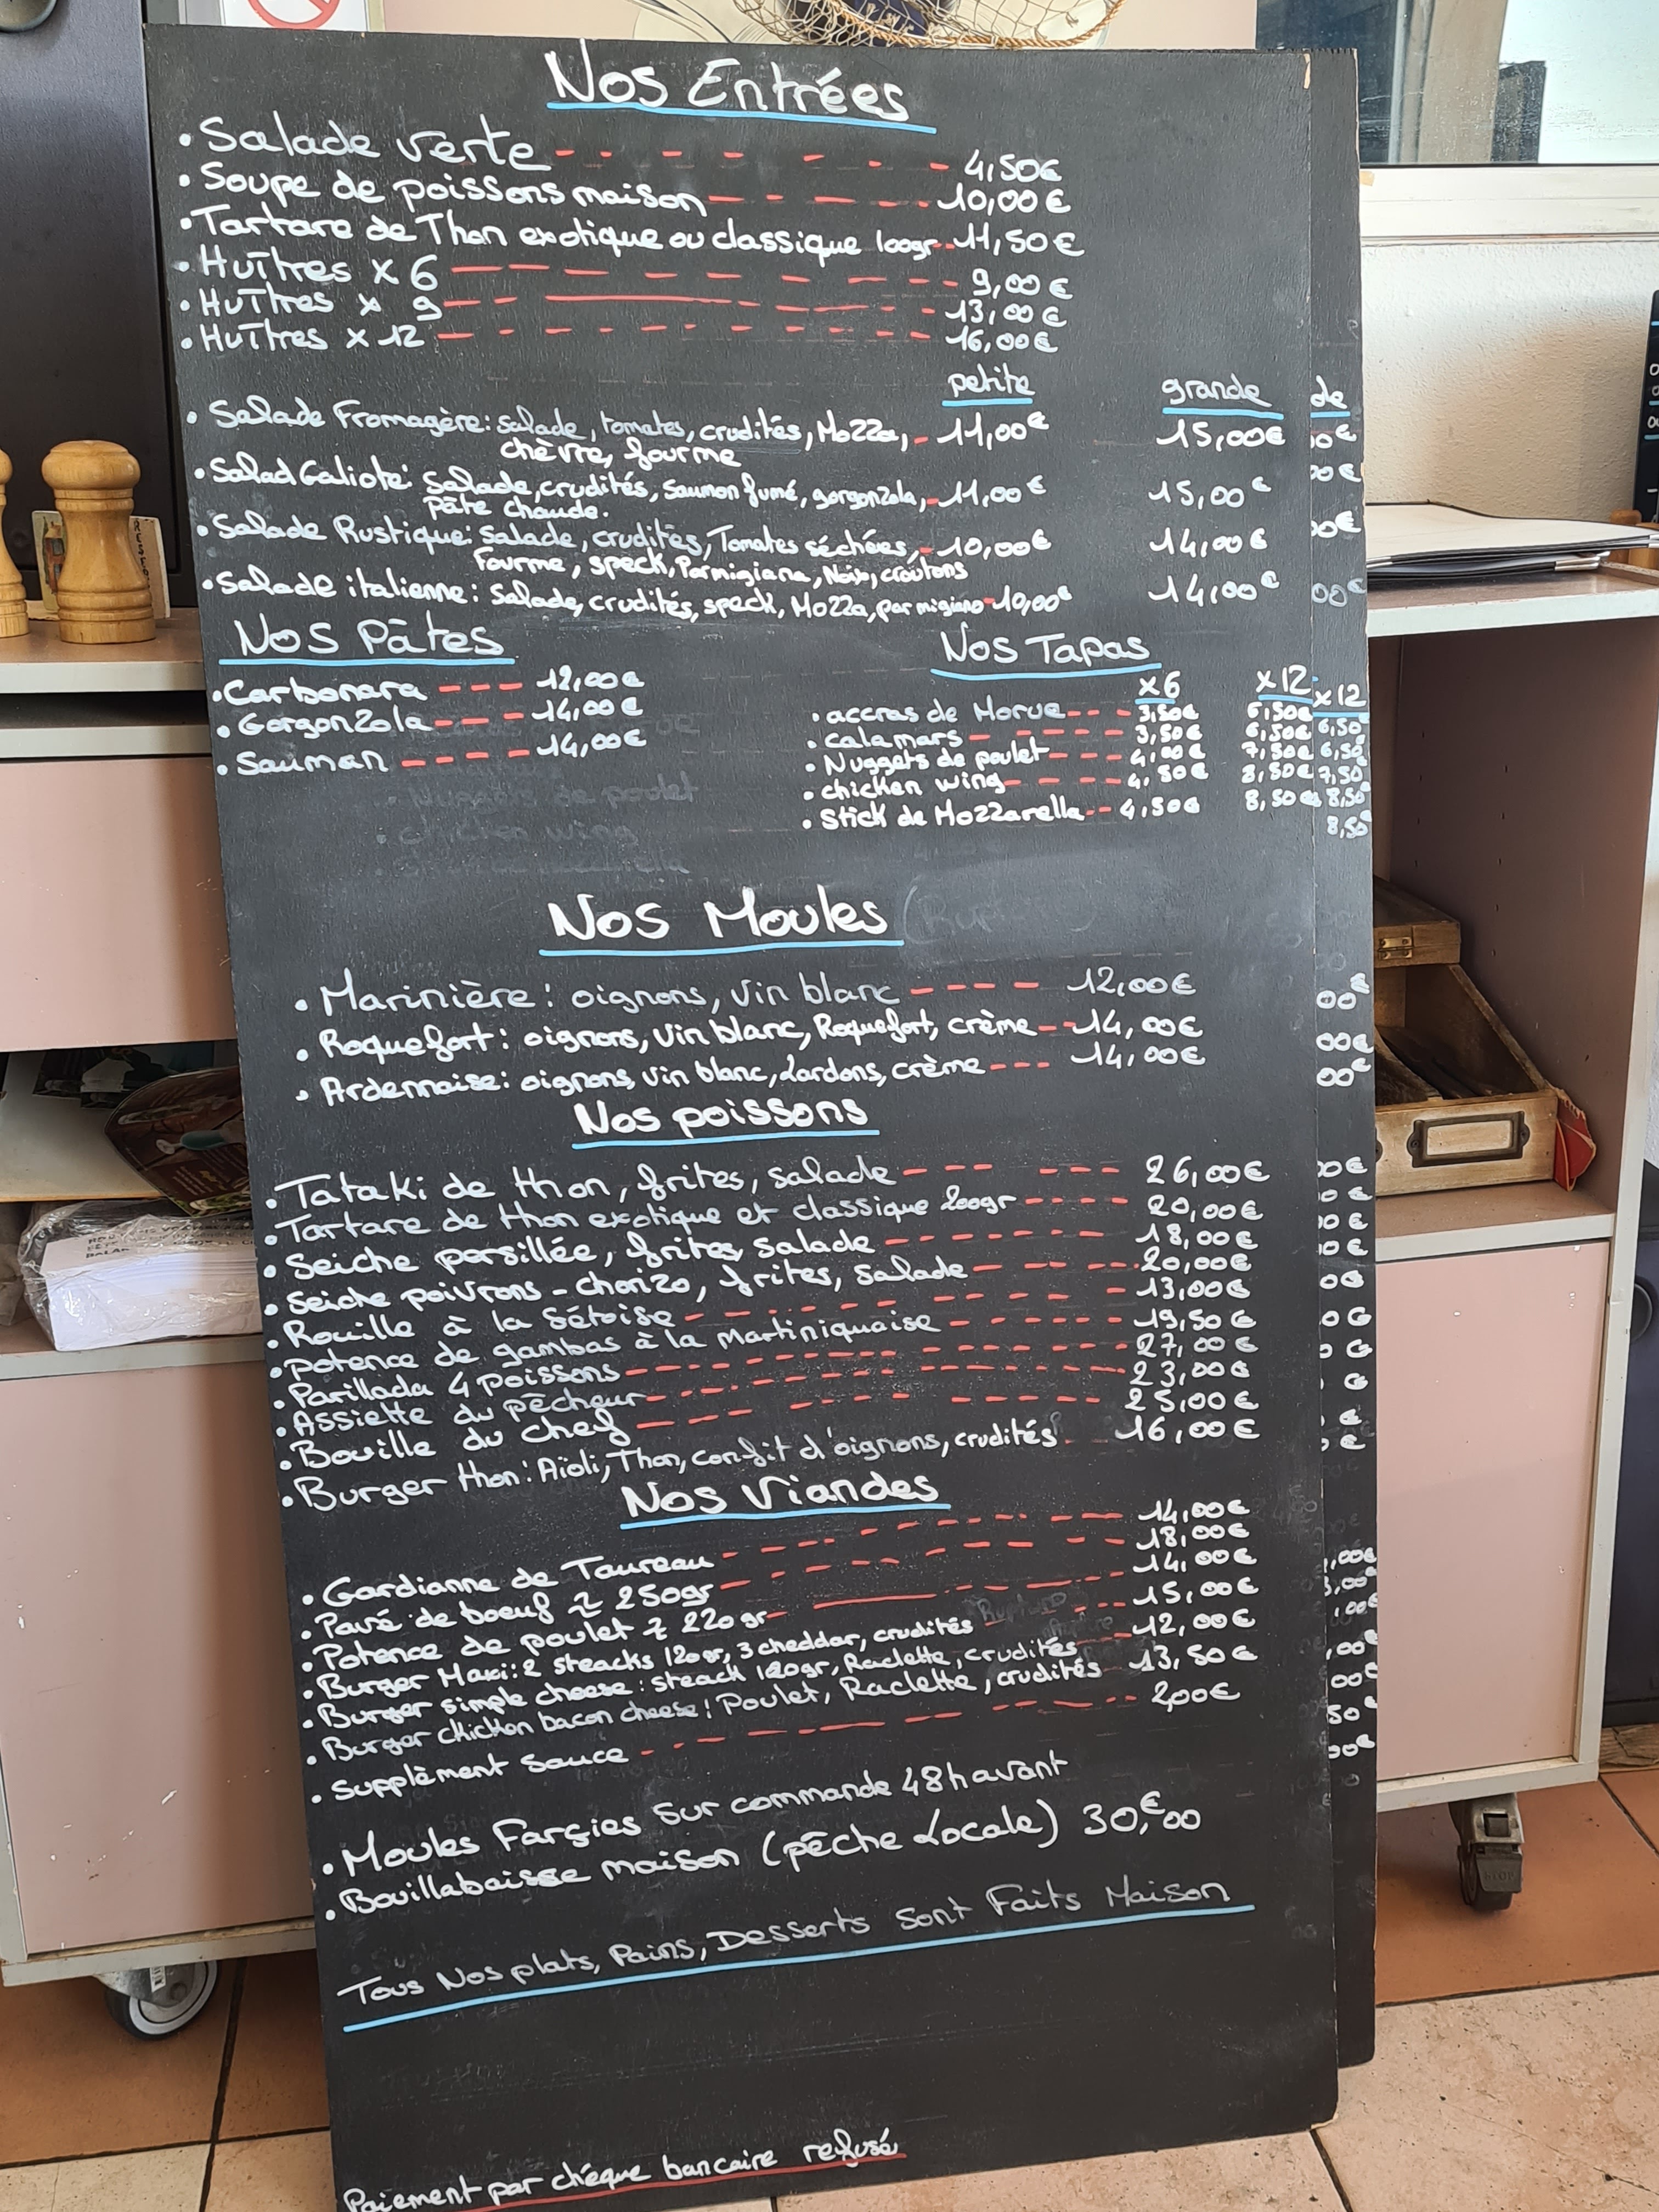 Nos Entrées
• Salade verte 4,50€
• Soupe de poissons maison 10,00€
• Tartare de Thon exotique ou classique 100gr 11,50€
• Huîtres x 6 9,00€
• Huîtres x 9 13,00€
• Huîtres x 12 16,00€
petite grande
• Salade Fromagère: salade, tomates, crudités, Mozza, 11,00€ 15,00€
chèvre, fourme
• Salad Galiote: Salade, crudités, Saumon fumé, gorgonzola, 11,00€ 15,00€
pâte chaude.
• Salade Rustique: Salade, crudités, Tomates séchées, 10,00€ 14,00€
Fourme, speck, Parmigiana, Noix, croûtons
• Salade italienne: Salade, crudités, speck, Mozza, parmigiano 10,00€ 14,00€
Nos Pâtes
• Carbonara 12,00€
• Gorgonzola 14,00€
• Saumon 14,00€
Nos Tapas
x6 x12
• accras de Morue 3,50€ 6,50€
• calamars 3,50€ 6,50€
• Nuggets de poulet 4,00€ 7,50€
• chicken wing 4,50€ 8,50€
• Stick de Mozzarella 4,50€ 8,50€
de
x12
6,50
6,50
7,50
8,50
8,50
Nos Moules
• Marinière: oignons, vin blanc 12,00€
• Roquefort: oignons, vin blanc, Roquefort, crème 14,00€
• Ardennaise: oignons, vin blanc, Lardons, crème 14,00€
Nos poissons
• Tataki de thon, frites, salade 26,00€
• Tartare de thon exotique et classique 200gr 20,00€
• Seiche persillée, frites, salade 18,00€
• Seiche poivrons - chorizo, frites, salade 20,00€
• Rouille à la Sétoise 13,00€
• Potence de gambas à la Martiniquaise 19,50€
• Parillada 4 poissons 27,00€
• Assiette du pêcheur 23,00€
• Bouille du chef 25,00€
• Burger thon: Aïoli, Thon, confit d'oignons, crudités 16,00€
Nos Viandes
• Gardianne de Taureau 14,00€
• Pavé de boeuf ≈ 250gr 18,00€
• Potence de poulet ≈ 220gr 14,00€
• Burger Maxi: 2 steacks 120gr, 3 cheddar, crudités 15,00€
• Burger simple cheese: steack 120gr, Raclette, crudités 12,00€
• Burger chicken bacon cheese: Poulet, Raclette, crudités 13,50€
• Supplément sauce 2,00€
• Moules Farcies sur commande 48h avant
• Bouillabaisse maison (pêche Locale) 30,€00
Tous Nos plats, Pains, Desserts sont Faits Maison
Paiement par chéque bancaire refusé